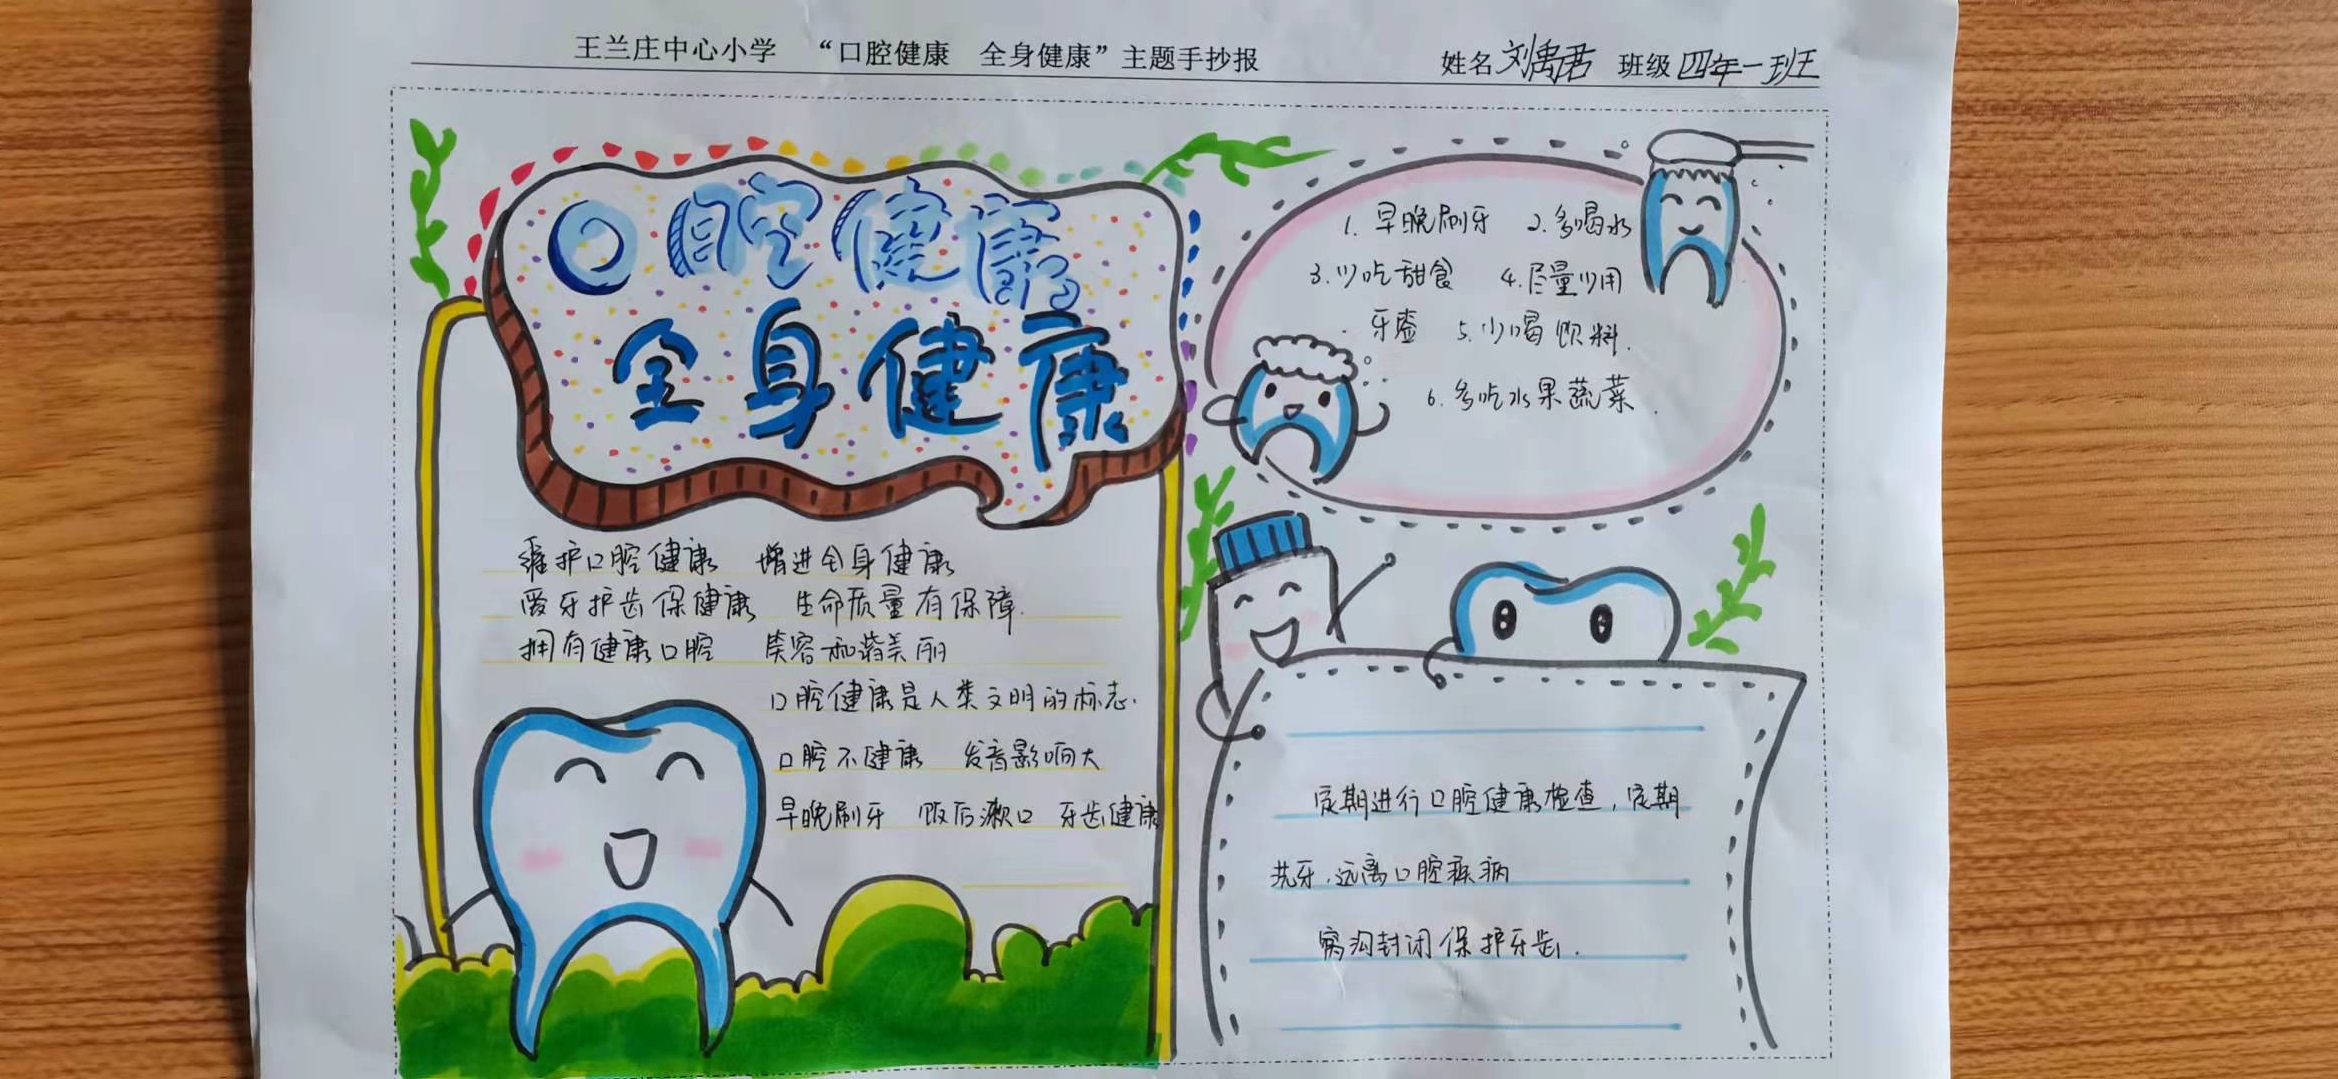 王兰庄中心小学 “口腔健康 全身健康”主题手抄报
姓名 刘禹君 班级 四年一班
口腔健康
全身健康
维护口腔健康 增进全身健康
爱牙护齿保健康 生命质量有保障.
拥有健康口腔 笑容和谐美丽
口腔健康是人类文明的标志.
口腔不健康 发音影响大
早晚刷牙 饭后漱口 牙齿健康
1. 早晚刷牙 2. 多喝水
3. 少吃甜食 4. 尽量少用
牙签 5. 少喝饮料.
6. 多吃水果蔬菜.
定期进行口腔健康检查,定期
洗牙.远离口腔疾病
窝沟封闭保护牙齿.